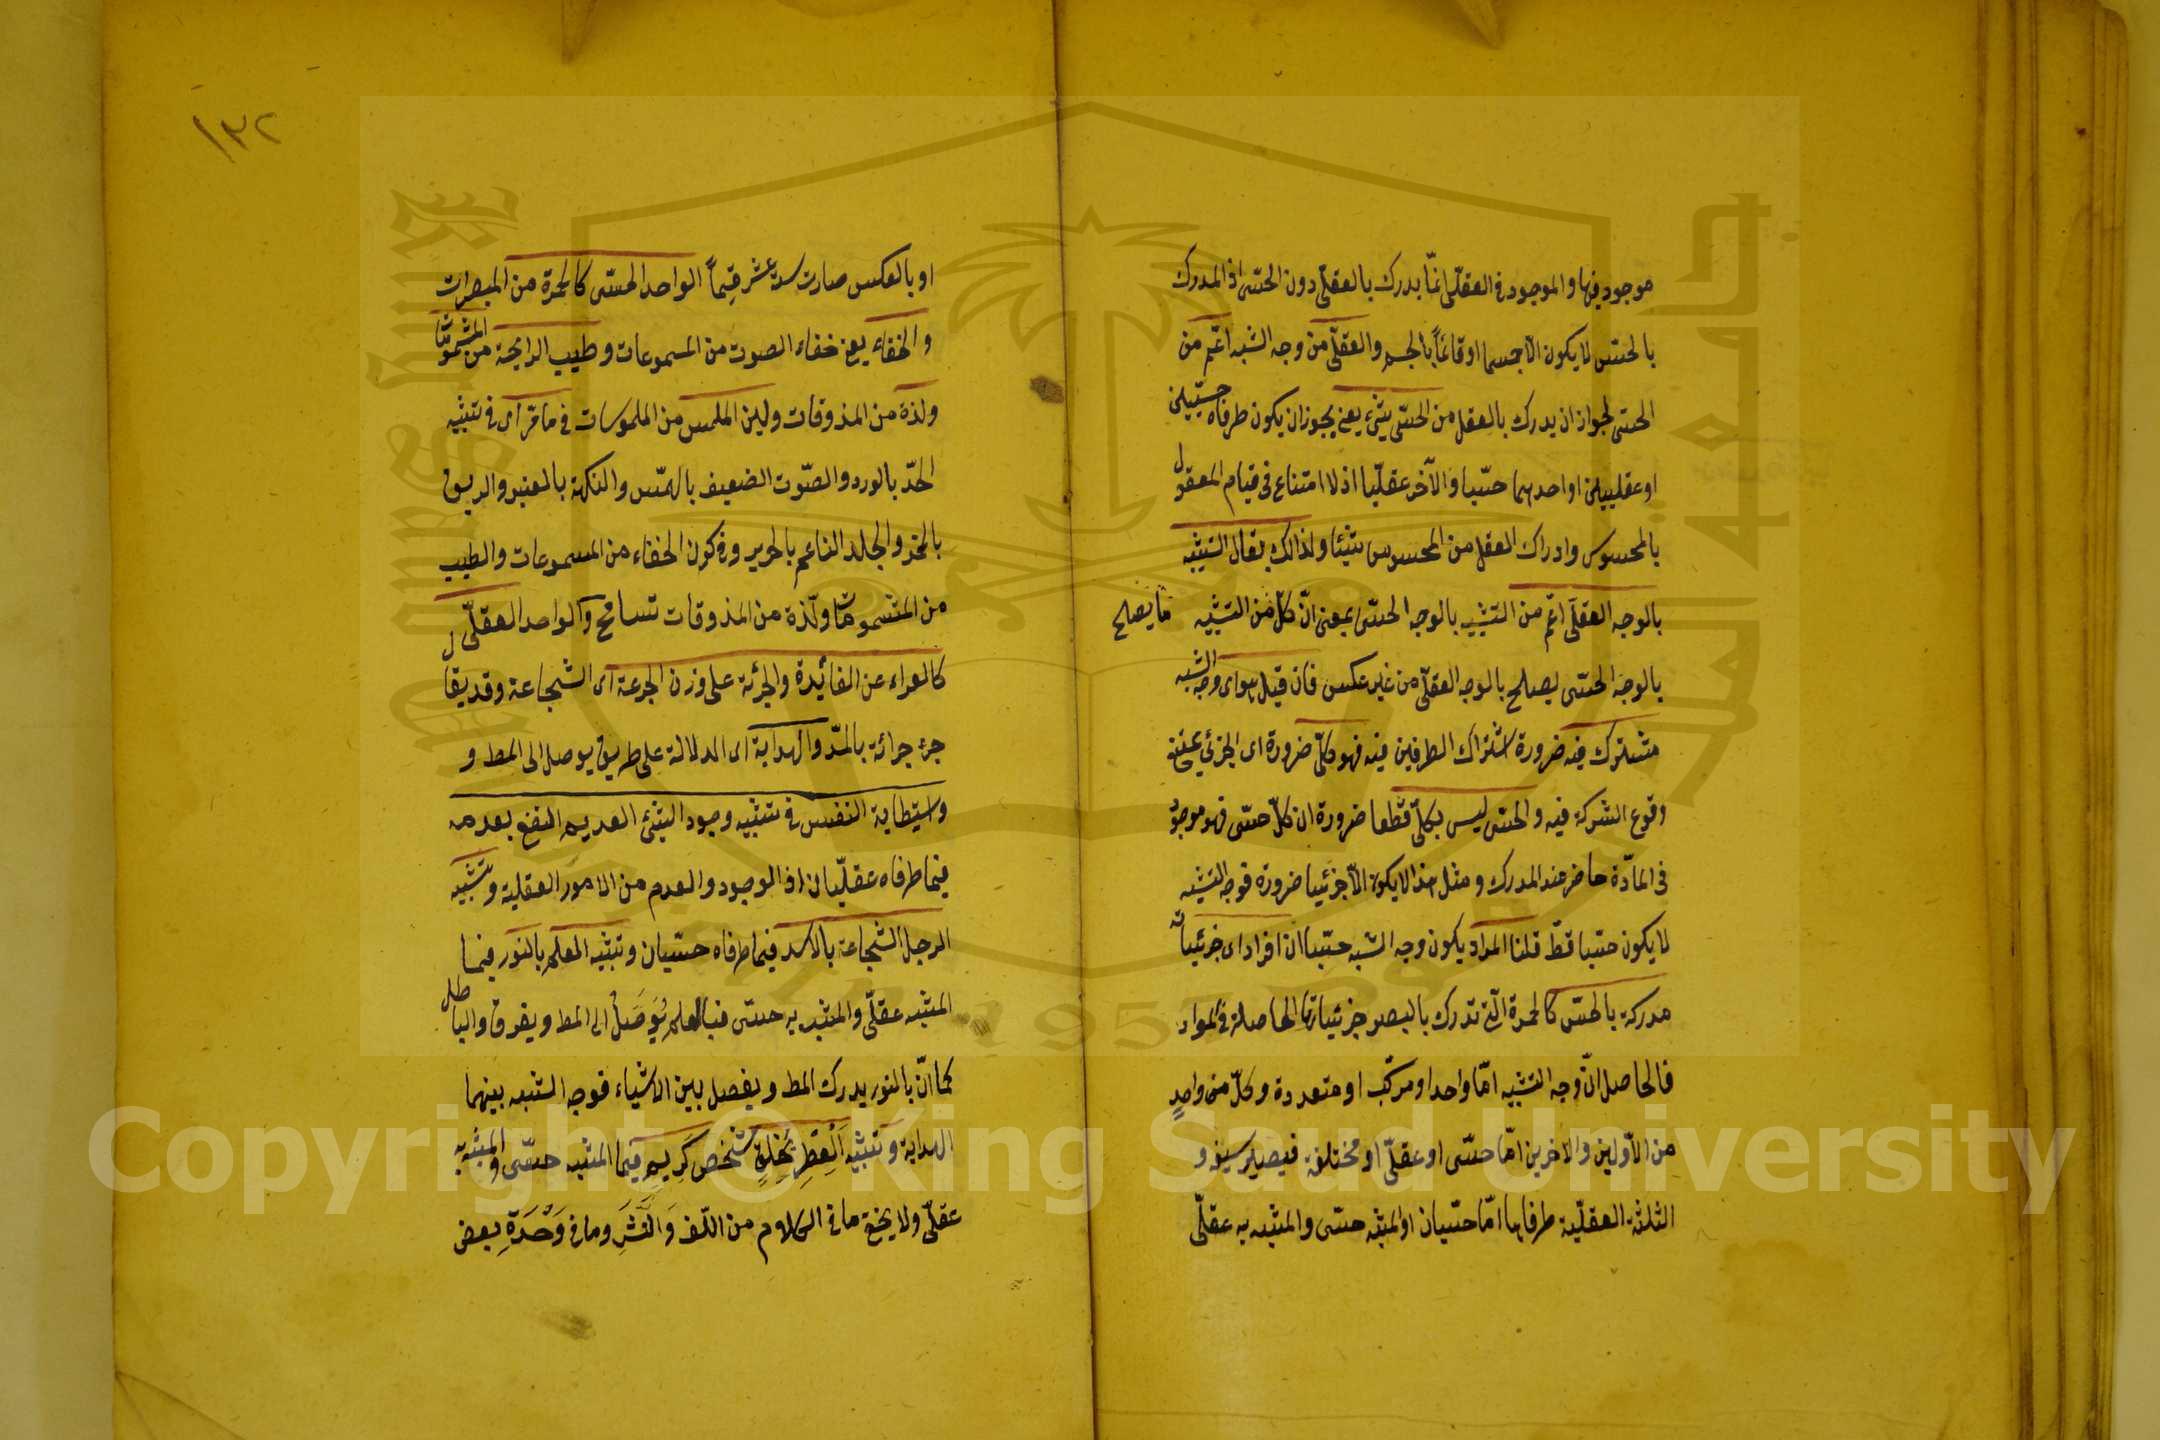 موجود فيها والموجود في العقلي انما يدرك بالعقل دون الحسي اذ المدرك
بالحس لا يكون الا جسما او قائما بالجسم والعقلي من وجه الشبه اعم من
الحسي لجواز ان يدرك بالعقل من الحسي شيء يعني يجوز ان يكون طرفاه حسيين
او عقليين او احدهما حسيا والآخر عقليا اذ لا امتناع في قيام المعقول
بالمحسوس وادراك العقل من المحسوس شيئا ولذالك يقال التشبيه
بالوجه العقلي اعم من التشبيه بالوجه الحسي بمعنى ان كل من التشبيه ما يصلح
بالوجه الحسي يصلح بالوجه العقلي من غير عكس فان قيل هو اى وجه الشبه
مشترك فيه ضرورة اشتراك الطرفين فيه فهو كلي ضرورة اى الجزئي يمتنع
وقوع الشركة فيه والحسي ليس بكلي قطعا ضرورة ان كل حسي فهو موجود
في المادة حاضر عند المدرك ومثل هذا لا يكون الا جزئيا ضرورة فوجه التشبيه
لا يكون حسيا قط قلنا المراد يكون وجه الشبه حسيا ان افراد اى جزئياته
مدركة بالحس كالحمرة التي تدرك بالبصر جزئياتها الحاصلة في المواد
فالحاصل ان وجه التشبيه اما واحد او مركب او متعددة وكل من واحد
من الاولين والاخرين اما حسي او عقلي او مختلفة فيصير سبعة و
الثلثة العقلية طرفاها اما حسيان او المشبه حسي والمشبه به عقلي
١٣٢
او بالعكس صارت ستة عشر قسما الواحد الحسي كالحمرة من المبصرات
والخفاء يعني خفاء الصوت من المسموعات وطيب الرايحة من المشمومات
ولذة من المذوقات ولين الملمس من الملموسات في ما مر اى في تشبيه
الخد بالورد والصوت الضعيف بالهمس والنكهة بالعنبر والريق
بالخمر والجلد الناعم بالحرير وفي كون الخفاء من المسموعات والطيب
من المشمومات ولذة من المذوقات تسامح والواحد العقلي
كالعراء عن الفائدة والجرئة على وزن الجرعة اى الشجاعة وقد يقال
جرء جرائة بالمد والهداية اى الدلالة على طريق يوصل الى المط و
واستطابة النفس في تشبيه وجود الشئ العديم النفع بعدمه
فيما طرفاه عقليان اذ الوجود والعدم من الامور العقلية وتشبيه
الرجل الشجاعة بالاسد فيما طرفاه حسيان وتشبيه العلم بالنور فيما
المشبه عقلي والمشبه به حسي فبالعلم يوصل الى المط ويفرق والباطل
كما ان بالنور يدرك المط ويفصل بين الاشياء فوجه الشبه بينهما
الهداية وتشبيه العطر بخلق شخص كريم فيما المشبه حسي والمشبه به
عقلي ولا يخفي ما في الكلام من اللف والنشر وما في وحدة بعض
Copyright © King Saud University
1957